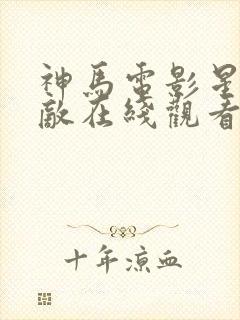 神馬電影星
敵在綫觀看
十年涼血